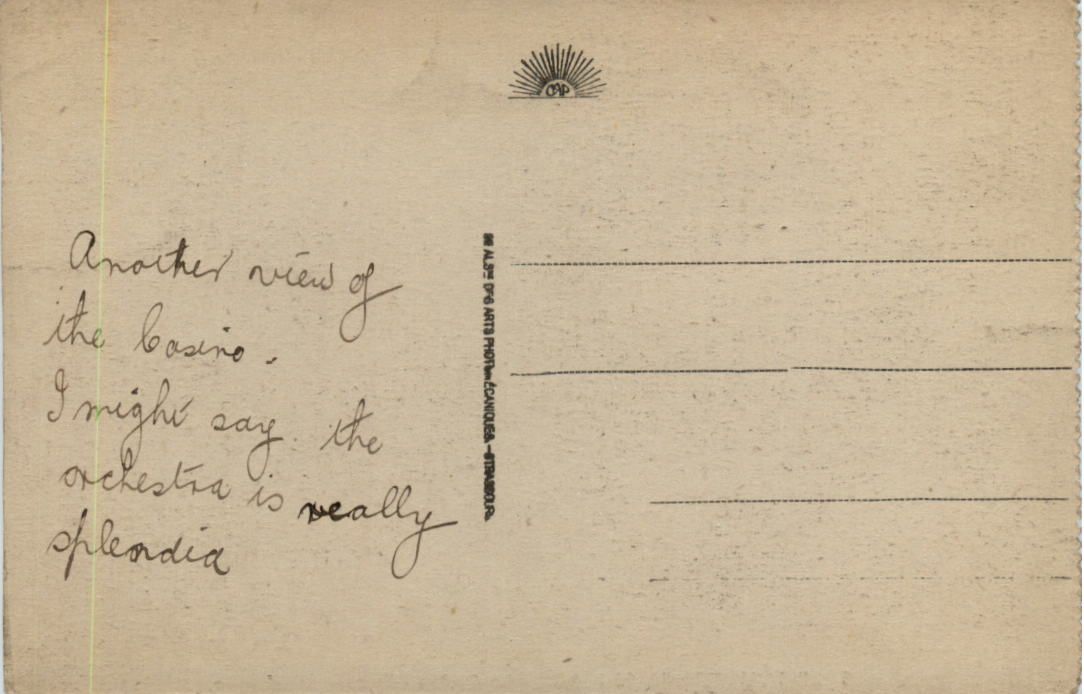 CAP
Another view of
the Casino.
I might say the
orchestra is really
splendid
ARTS PHOTOMÉCANIQUES — STRASBOURG